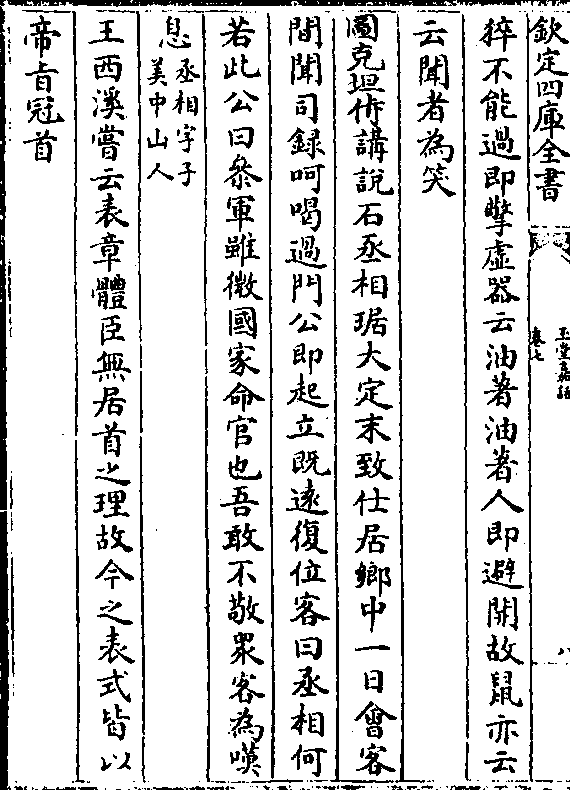 欽定四庫全書
玉堂嘉話
卷七
八
猝不能過即擎虛器云油著油著人即避開故鼠亦云
云聞者為笑
圖克坦侍講說石丞相琚大定末致仕居鄉中一日會客
間聞司録呵喝過門公即起立既遠復位客曰丞相何
若此公曰叅軍雖微國家命官也吾敢不敬衆客為嘆
息丞相字子
美中山人
王西溪嘗云表章體臣無居首之理故今之表式皆以
帝㫖冠首